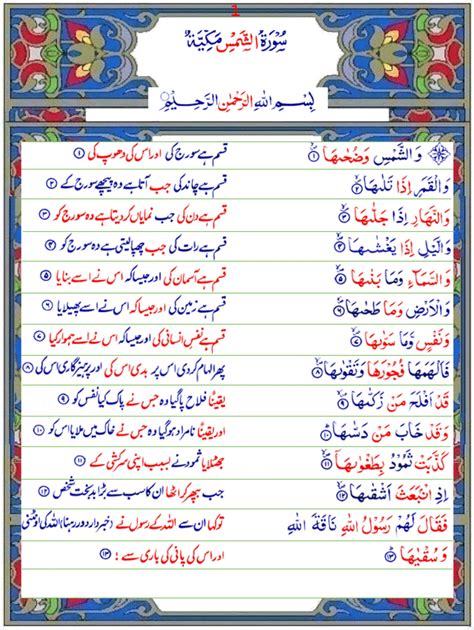 1
سُوْرَةُ الشَّمْسِ مَكِّيَّةٌ
بِسْمِ اللهِ الرَّحْمٰنِ الرَّحِيْمِ
وَالشَّمْسِ وَضُحٰىهَا ۱ قسم ہے سورج کی اور اس کی دھوپ کی ۱
وَالْقَمَرِ اِذَا تَلٰىهَا ۲ قسم ہے چاند کی جب آتا ہے وہ پیچھے سورج کے ۲
وَالنَّهَارِ اِذَا جَلّٰىهَا ۳ قسم ہے دن کی جب نمایاں کر دیتا ہے وہ سورج کو ۳
وَالَّيْلِ اِذَا يَغْشٰىهَا ۴ قسم ہے رات کی جب چھپا لیتی ہے وہ سورج کو ۴
وَالسَّمَآءِ وَمَا بَنٰىهَا ۵ قسم ہے آسمان کی اور جیسا کہ اس نے اسے بنایا ۵
وَالْاَرْضِ وَمَا طَحٰىهَا ۶ قسم ہے زمین کی اور جیسا کہ اس نے اسے پھیلایا ۶
وَنَفْسٍ وَّمَا سَوّٰىهَا ۷ قسم ہے نفس انسانی کی اور جیسا کہ اس نے اسے ہموار کیا ۷
فَاَلْهَمَهَا فُجُوْرَهَا وَتَقْوٰىهَا ۸ پھر الہام کر دی اس پر بدی اس کی اور پرہیز گاری اس کی ۸
قَدْ اَفْلَحَ مَنْ زَكّٰىهَا ۹ یقیناً فلاح پا گیا وہ جس نے پاک کیا نفس کو ۹
وَقَدْ خَابَ مَنْ دَسّٰىهَا ۱۰ اور یقیناً نامراد ہو گیا وہ جس نے خاک میں ملا دیا اس کو ۱۰
كَذَّبَتْ ثَمُوْدُ بِطَغْوٰىهَا ۱۱ جھٹلایا ثمود نے بسبب اپنی سرکشی کے ۱۱
اِذِ انْۢبَعَثَ اَشْقٰىهَا ۱۲ جب بپھر کر اٹھا ان کا سب سے بڑا بدبخت شخص ۱۲
فَقَالَ لَهُمْ رَسُوْلُ اللهِ نَاقَةَ اللهِ تو کہا ان سے اللہ کے رسول نے (خبردار دور رہنا) اللہ کی اونٹنی
وَسُقْيٰهَا ۱۳ اور اس کی پانی کی باری سے! ۱۳